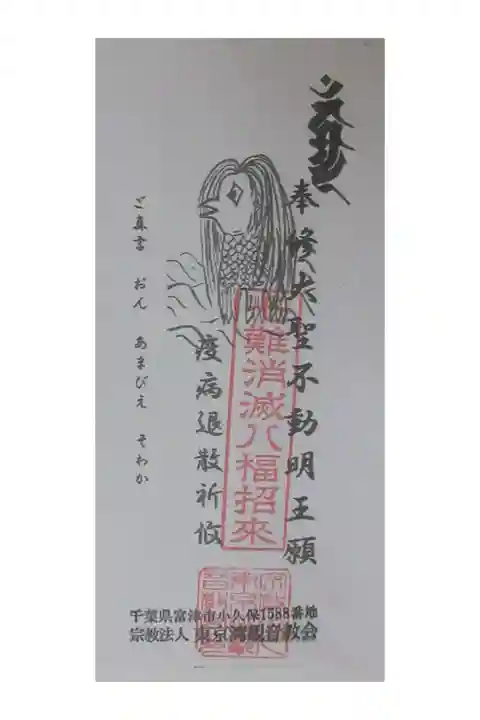 奉修大聖不動明王願
難消滅八福招來
疫病退散祈攸
ご真言 おん あまびえ そわか
千葉県富津市小久保1588番地
宗教法人 東京湾観音教会